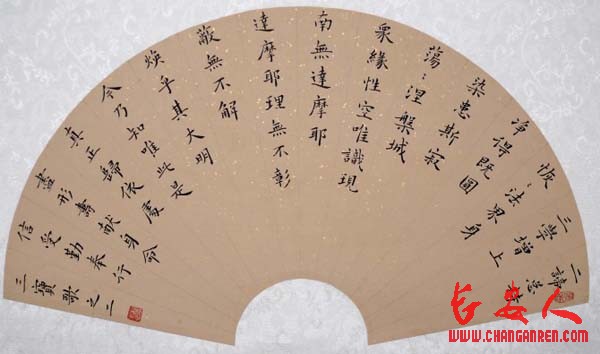 二諦總持
三學增上
恢：法界身
淨得既圓
染患斯寂
蕩：涅槃城
衆緣性空唯識現
南無達摩耶
達摩耶理無不彰
蔽無不解
煥乎其大明
今乃知唯此是
真正歸依處
盡形壽獻身命
信受勤奉行
三寶歌之二
长安人
www.CHANGANREN.com